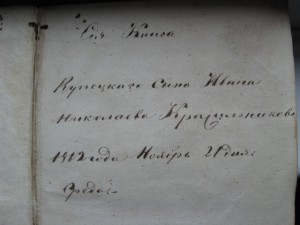 Сiя Книга
Купецкаго сына Ивана
Николаева Красильникова
1912 года Ноябрь 21 дня
Среда